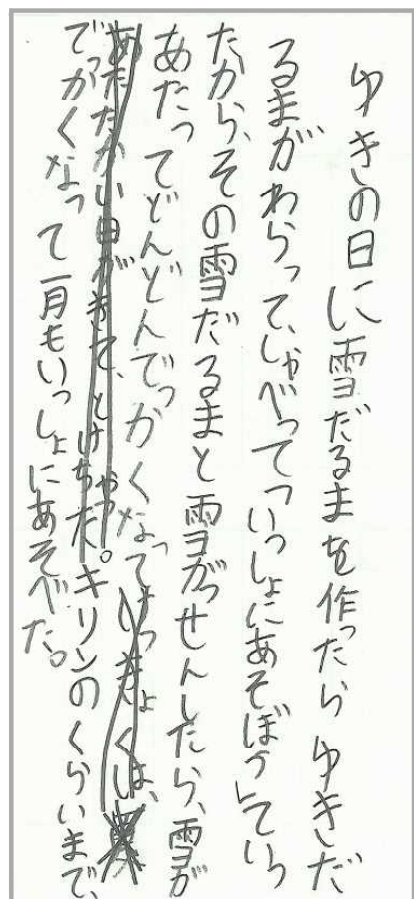 ゆきの日に雪だるまを作ったらゆきだ
るまがわらって、しゃべって「いっしょにあそぼう」ていっ
たから、その雪だるまと雪がっせんしたら、雪が
あたってどんどんでっかくなって
あたたかい日がきて、とけちゃった。キリンのくらいまで、
でっかくなって一月もいっしょにあそべた。